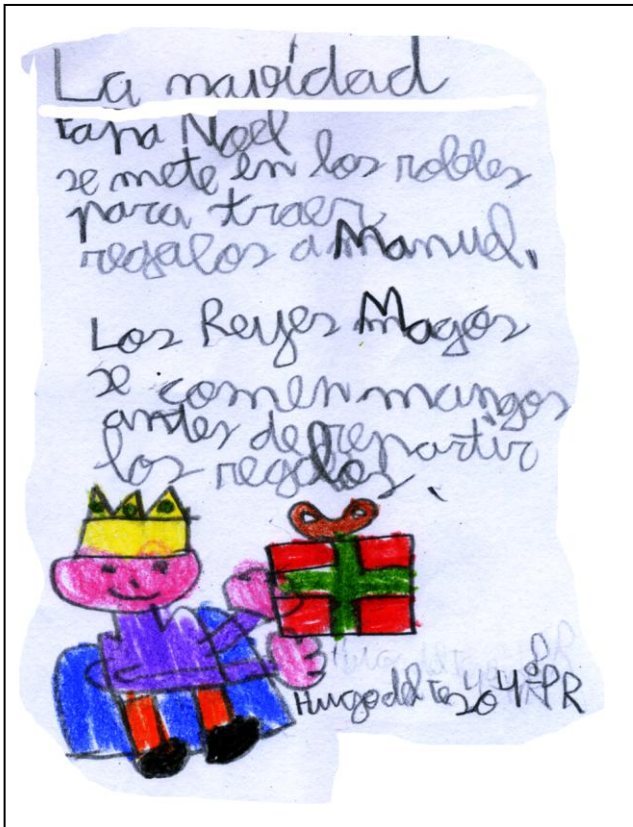 La navidad
Papa Noel
se mete en los robles
para traer
regalos a Manuel.
Los Reyes Magos
se comen mangos
antes de repartir
los regalos.
Hugo del Teso 4º PR